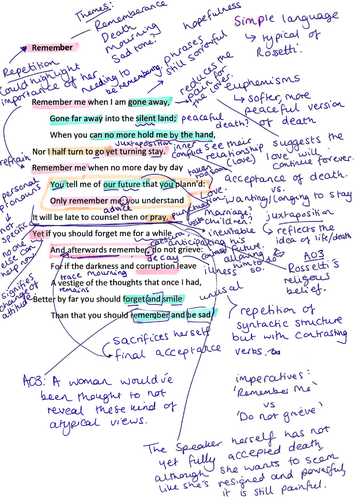 Themes:
- Rememberance
Death
Mourning
Sad tone.
hopefulness
phrases
still sorrowful
Simple language
↳ typical of
Rossetti.
Remember
Repetition
Could highlight
importance of her
needing to
be remembered.
reduces the
pain for
the lover.
euphemisms
↳ softer, more
peaceful version
of death
Remember me when I am gone away,
Gone far away into the silent land;
peaceful
death?
When you can no more hold me by the hand,
juxtaposition
Nor I half turn to go yet turning stay.
inner
conflict
see their
relationship suggests the
love will
continue forever.
refrain
Remember me when no more day by day
You tell me of our future that you plann'd:
Only remember me; you understand
advice
It will be late to counsel then or pray.
acceptance of death.
vs.
Wanting/Longing to stay
marriage?
children?
juxtaposition
↳ reflects the
idea of life/death
inevitable
personal
pronouns
not
specific
no one
can
help
Signifies
change of
attitude
Yet if you should forget me for a while
And afterwards remember, do not grieve:
anticipating his
future.
allowing
him to do
so.
decay
illness
For if the darkness and corruption leave
trace mourning
remains
A vestige of the thoughts that once I had,
unusual
Better by far you should forget and smile
Than that you should remember and be sad.
A03
Rossetti's
religious
belief.
repetition of
syntactic structure
but with contrasting
verbs.
Sacrifices herself
final acceptance
imperatives:
'Remember Me'
vs
'Do not grieve'
A03: A woman would've
been thought to not
reveal these kind of
atypical views.
The Speaker herself has not
yet fully accepted death,
although she wants to seem
like she's resigned and powerful,
it is still painful.